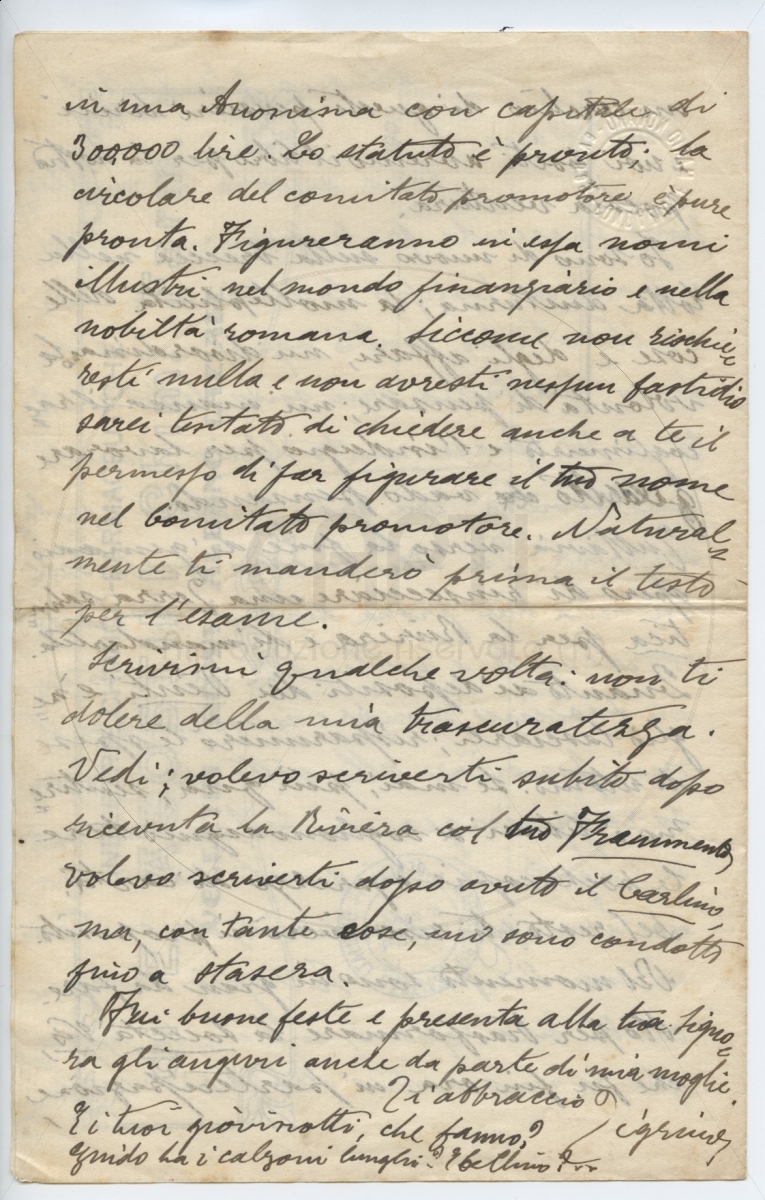 in una Anonima con capitale di
300,000 lire. Lo statuto è pronto; la
circolare del comitato promotore è pure
pronta. Figureranno in essa nomi
illustri nel mondo finanziario e nella
nobiltà romana. Siccome non rischie=
resti nulla e non avresti nessun fastidio
sarei tentato di chiedere anche a te il
permesso di far figurare il tuo nome
nel Comitato promotore. Natural=
mente ti manderò prima il testo
per l'esame.
Scrivimi qualche volta: non ti
dolere della mia trascuratezza.
Vedi; volevo scriverti subito dopo
ricevuta la Riviera col tuo Frammento,
volevo scriverti dopo avuto il Carlino,
ma, con tante cose, mi sono condotto
fino a stasera.
Fai buone feste e presenta alla tua Signo=
ra gli auguri anche da parte di mia moglie.
Ti abbraccio
E i tuoi giovinotti, che fanno?
Guido ha i calzoni lunghi? E bellino?..